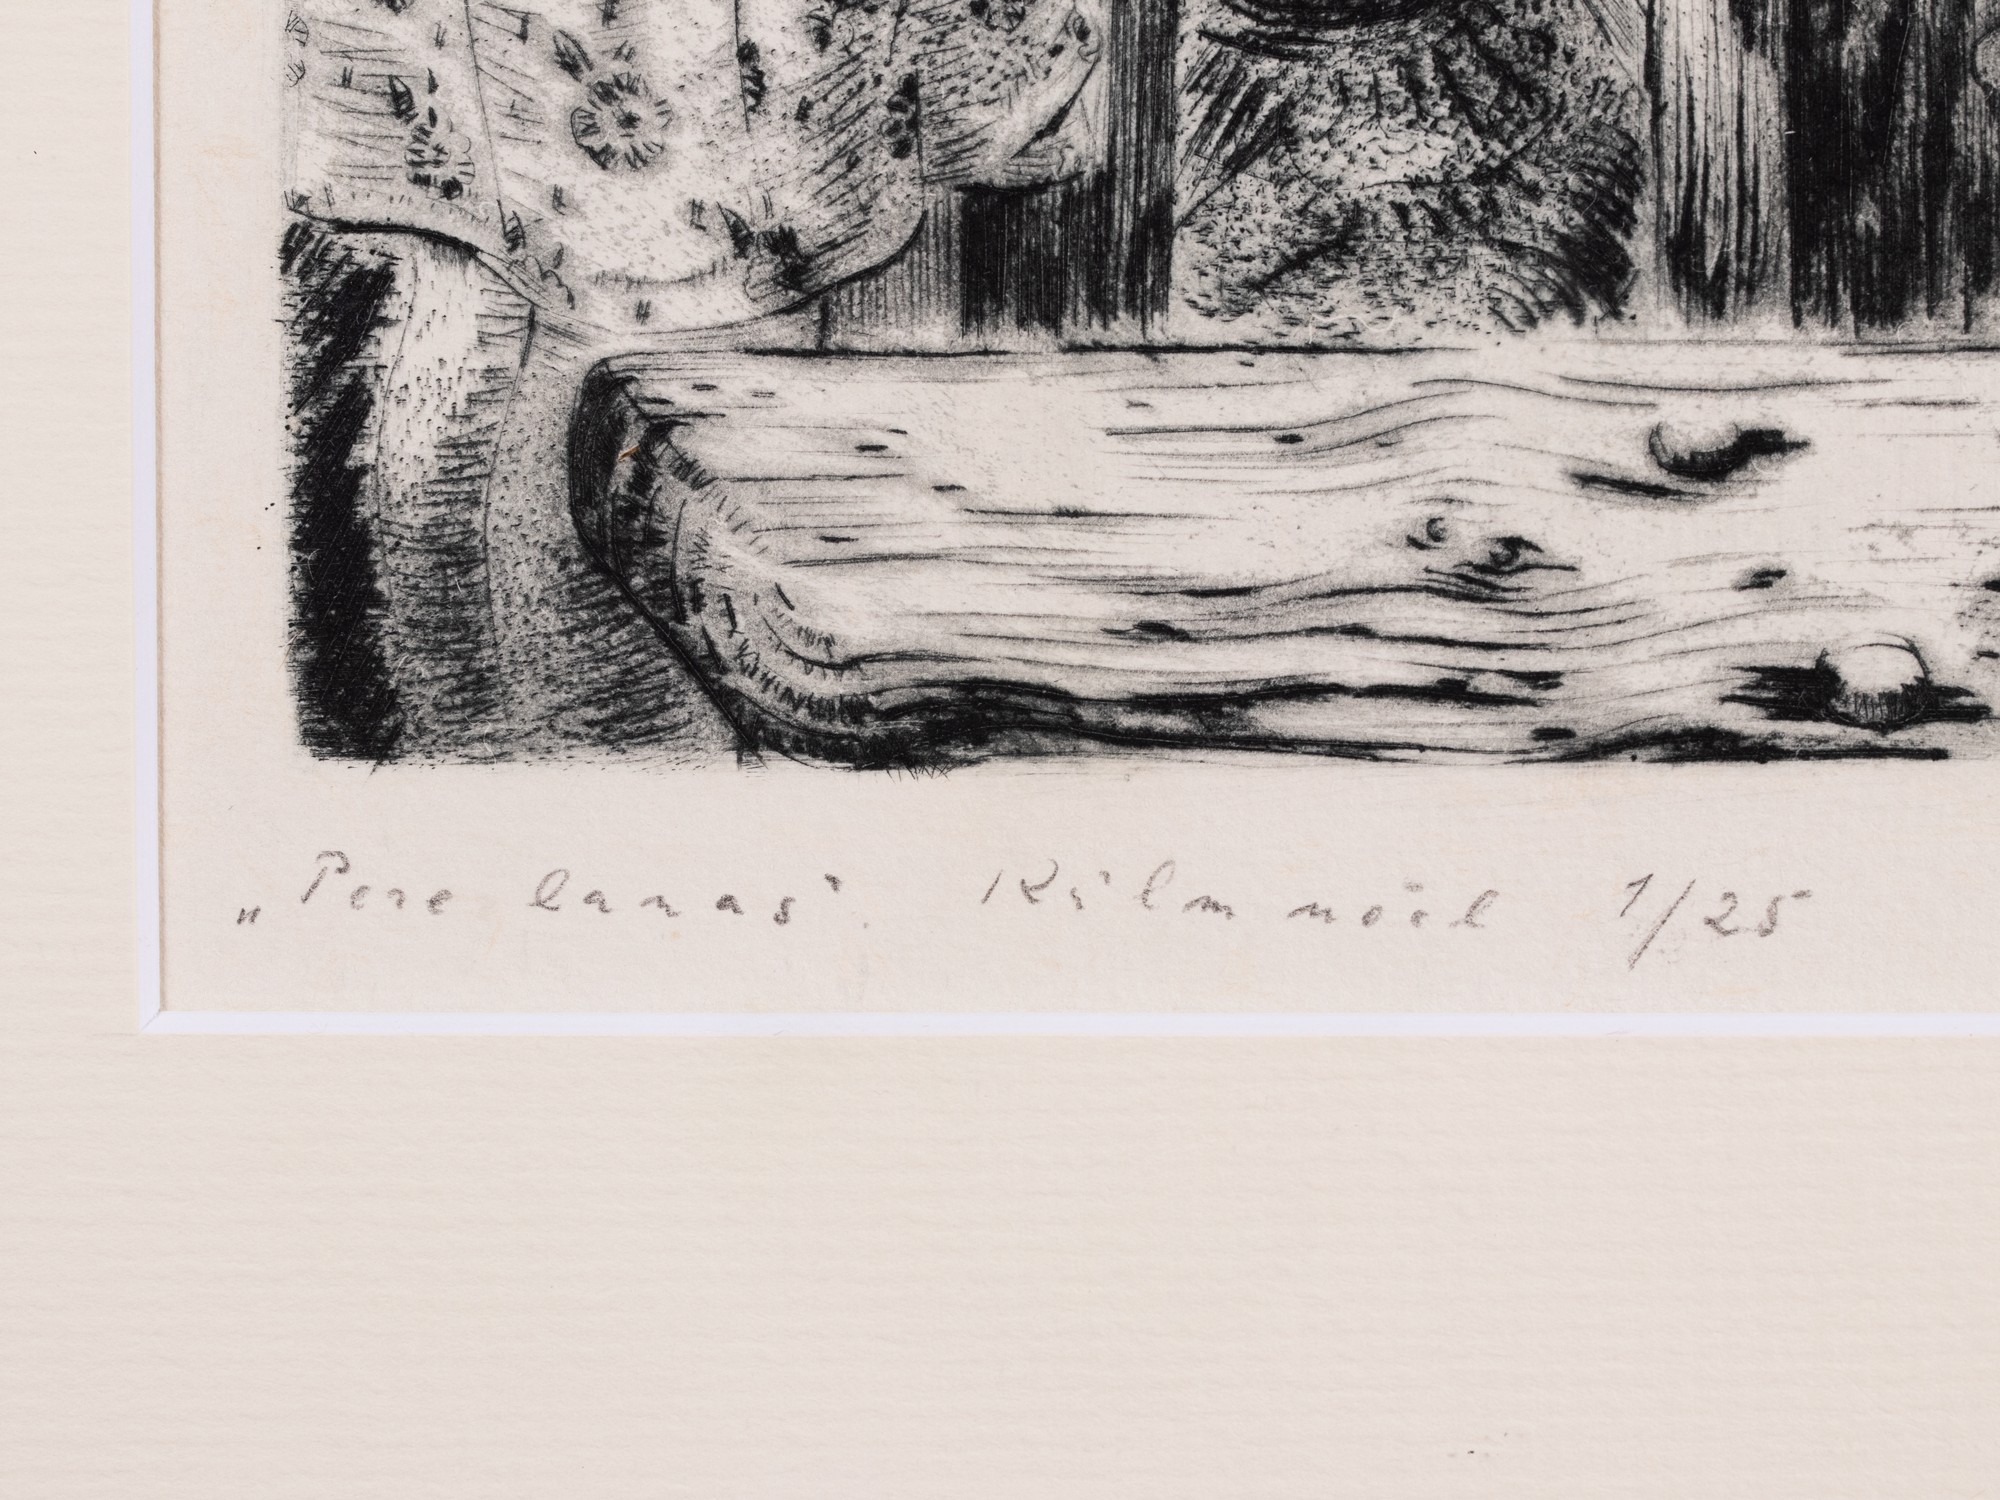 „Pere lanas“. Külm nõel 1/25